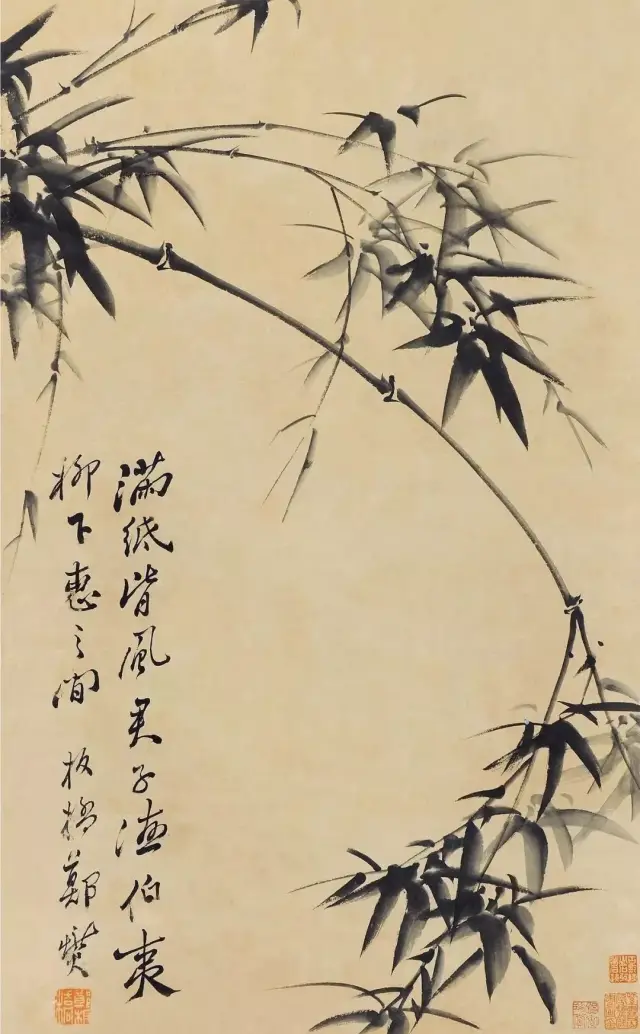 滿紙皆風君子德伯夷
柳下惠之間 板橋鄭燮